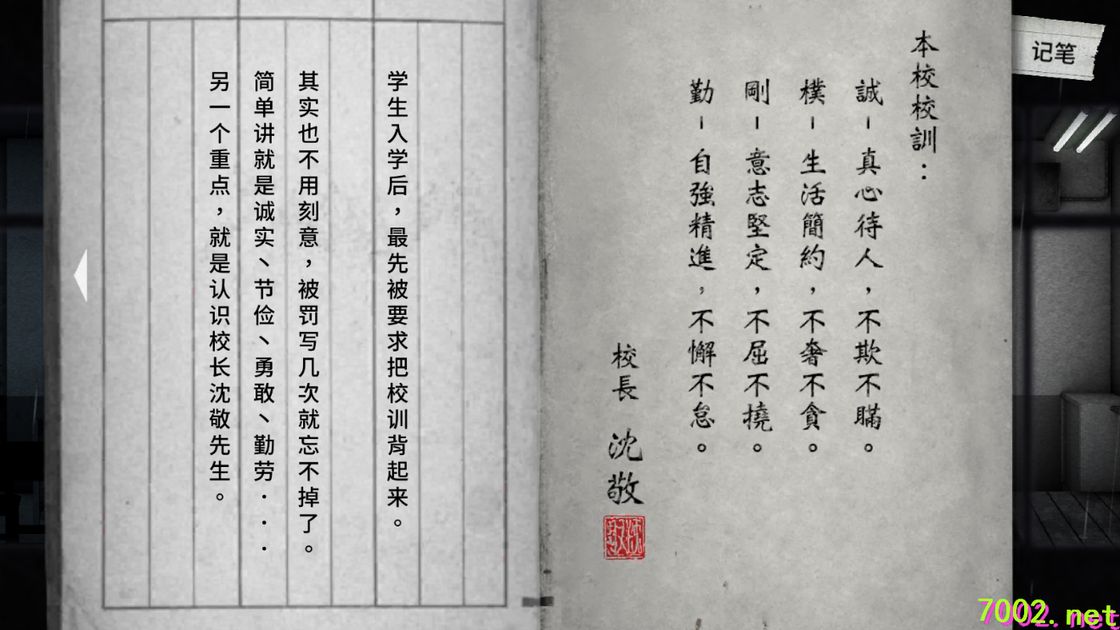 本校校訓：
誠－真心待人，不欺不瞞。
樸－生活簡約，不奢不貪。
剛－意志堅定，不屈不撓。
勤－自強精進，不懈不怠。
校長 沈敬
学生入学后，最先被要求把校训背起来。
其实也不用刻意，被罚写几次就忘不掉了。
简单讲就是诚实、节俭、勇敢、勤劳...
另一个重点，就是认识校长沈敬先生。
记笔
7002.net